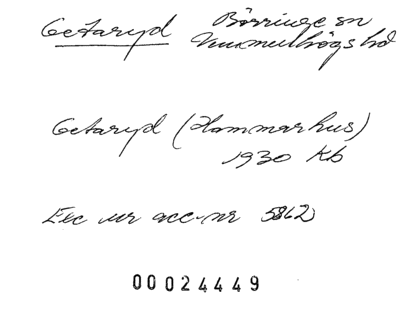 Getaryd Börringe sn
Vemmenhögs hd
Getaryd (Hammarhus)
1930 Kb
Exc ur acc-nr 5862
00024449